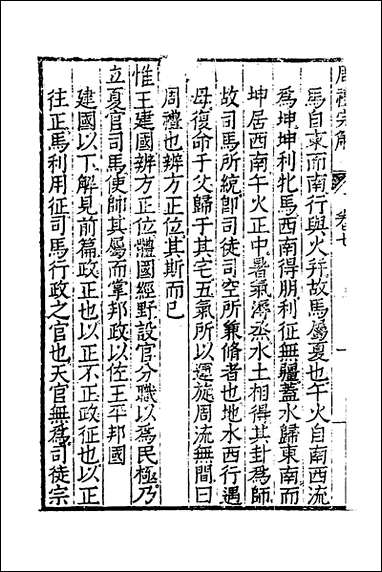 周禮宗解 卷七 一
馬自東而南行與火幷故馬屬夏也午火自南西流
爲坤坤利牝馬西南得朋利征無疆蓋水歸東南而
坤居西南午火正中暑氣溽烝水土相得其封爲師
故司馬所統卽司徒司空所兼脩者也地水西行遇
母復命于父歸于其宅五氣所以運旋周流無間曰
周禮也辨方正位其斯而已
惟王建國辨方正位體國經野設官分職以爲民極乃
立夏官司馬使師其屬而掌邦政以佐王平邦國
建國以下解見前篇政正也以正不正政征也以正
往正馬利用征司馬行政之官也天官無爲司徒宗